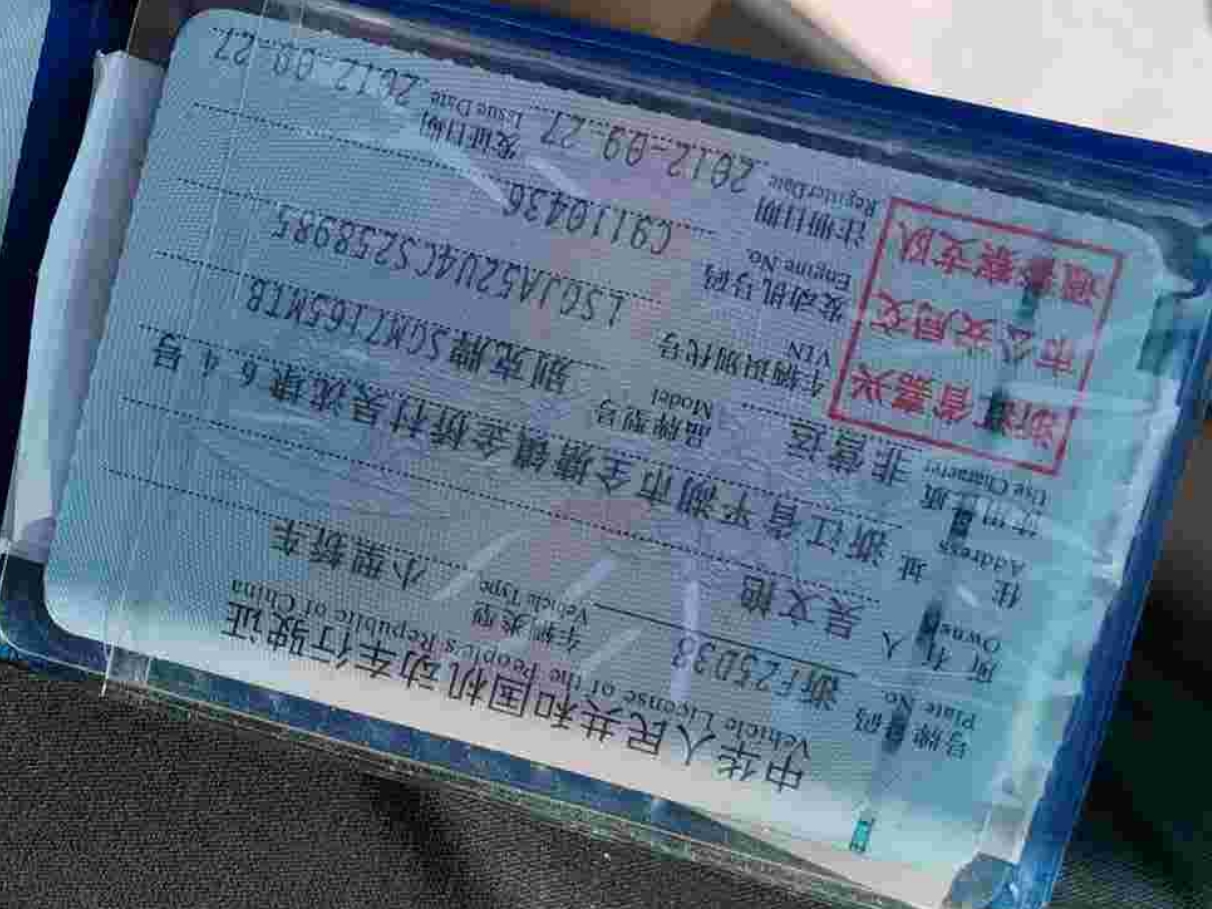 中华人民共和国机动车行驶证
Vehicle License of the People's Republic of China
号牌号码 浙FZ5D33 车辆类型 小型轿车
Plate No. Vehicle Type
所有人 吴文
Owner
住址 浙江省平湖市全塘镇金桥村吴沈埭64号
Address
使用性质 非营运 品牌型号 别克牌SGM7165MTB
Use Character Model
浙江省嘉兴市公安局交通警察支队
车辆识别代号 LSGJA52U4CS258985
VIN
发动机号码 C9110436
Engine No.
注册日期 2012-09-27 发证日期 2012-09-27
Register Date Issue Date